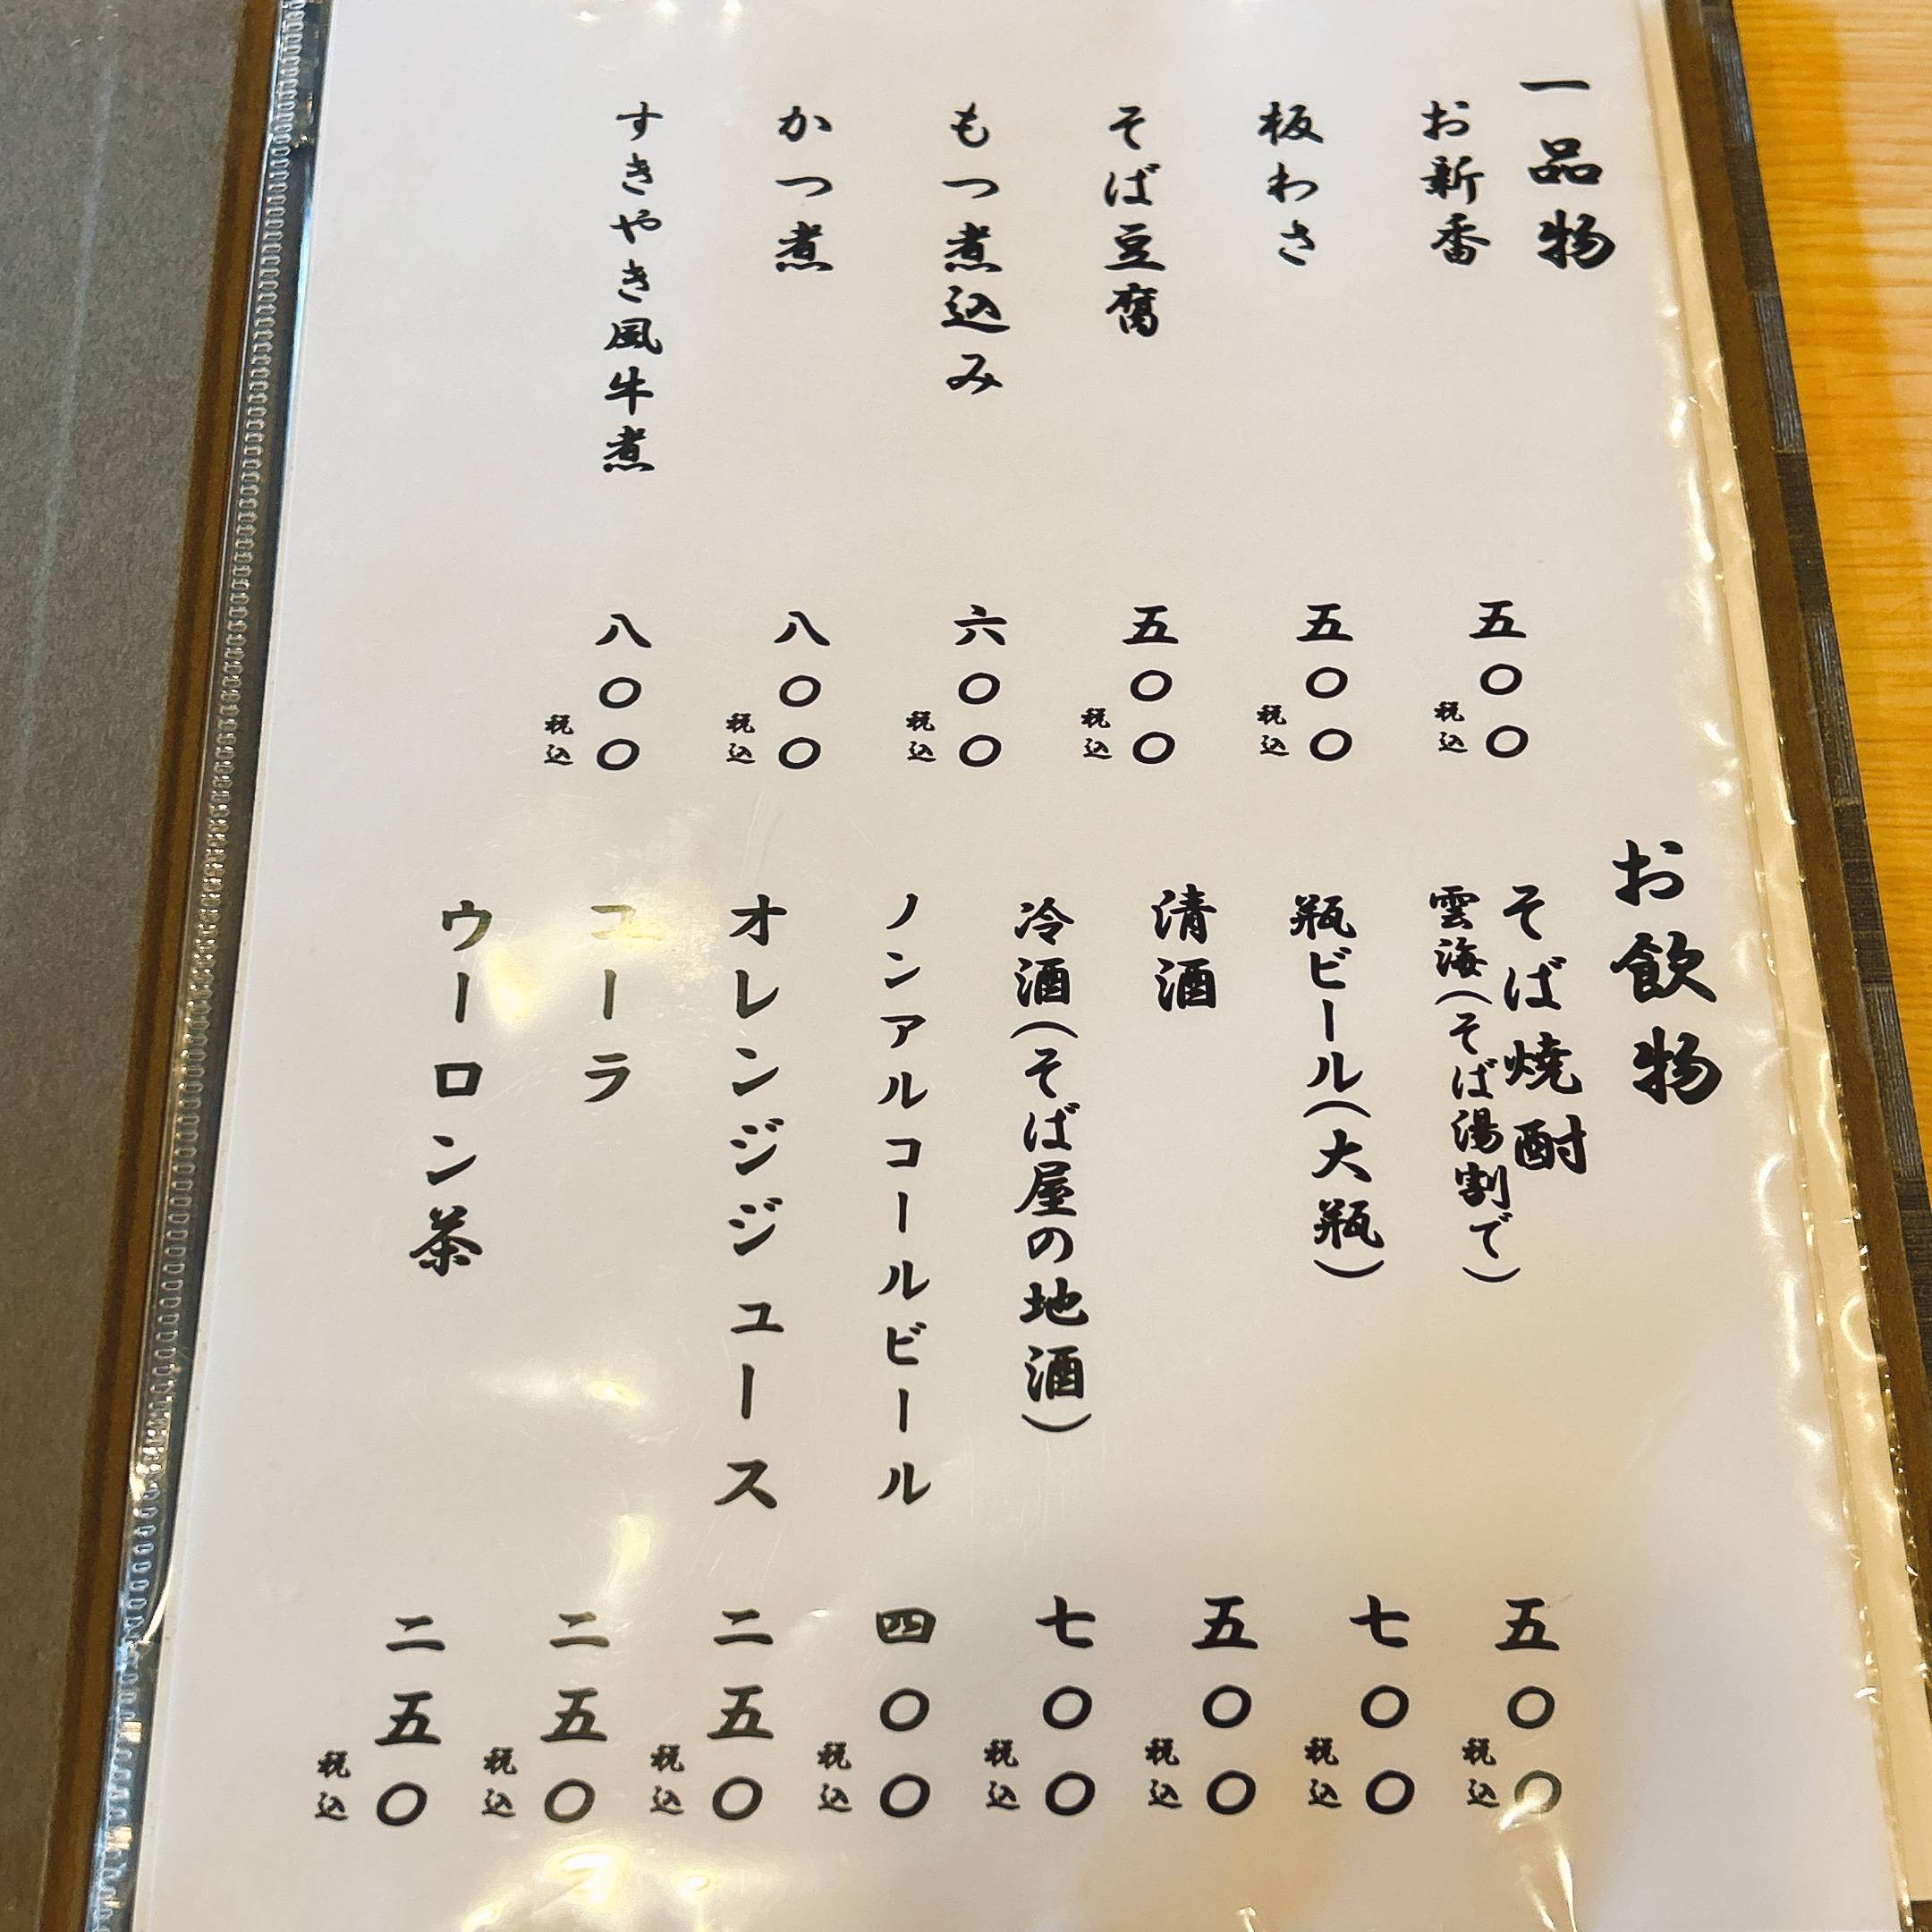 一品物
お新香
五〇〇
税込
板わさ
五〇〇
税込
そば豆腐
五〇〇
税込
もつ煮込み
六〇〇
税込
かつ煮
八〇〇
税込
すきやき風牛煮
八〇〇
税込
お飲物
そば焼酎
雲海(そば湯割で)
五〇〇
税込
瓶ビール(大瓶)
七〇〇
税込
清酒
五〇〇
税込
冷酒(そば屋の地酒)
七〇〇
税込
ノンアルコールビール
四〇〇
税込
オレンジジュース
二五〇
税込
コーラ
二五〇
税込
ウーロン茶
二五〇
税込